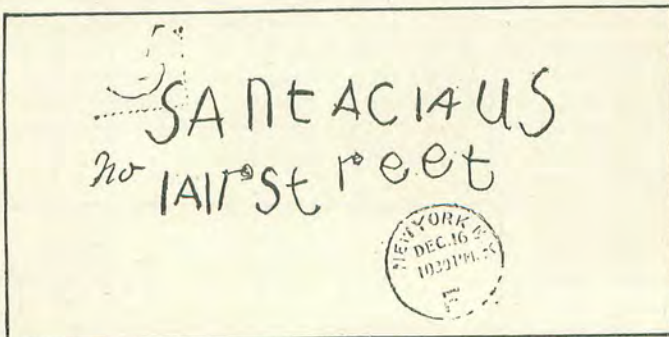 SAntAClAUS
no 1AIrStreet
NEW YORK N.Y.
DEC. 16
1030 PM
F